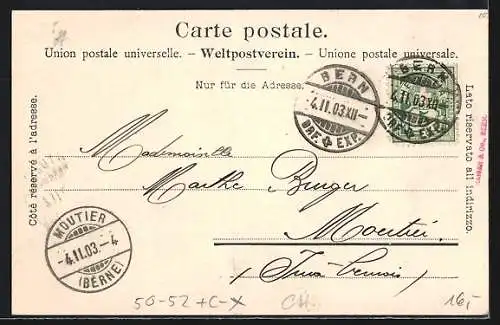 Carte postale.
Union postale universelle. - Weltpostverein. - Unione postale universale.
Nur für die Adresse.
Côté réservé à l'adresse.
Lato riservato all' indirizzo.
BERN
-4.11.03.XII-
BRF. EXP.
BERN
-4.11.03.XII-
BRF. EXP.
Mademoiselle
Marthe Burger
Moutier
(Jura bernois)
MOUTIER
-4.11.03.-4
(BERNE)
50-52 +C-X
CH.
16,-